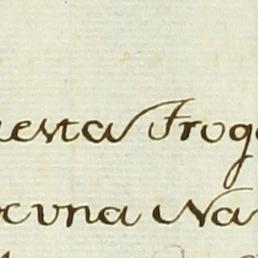 uesta Froga
ocuna Na